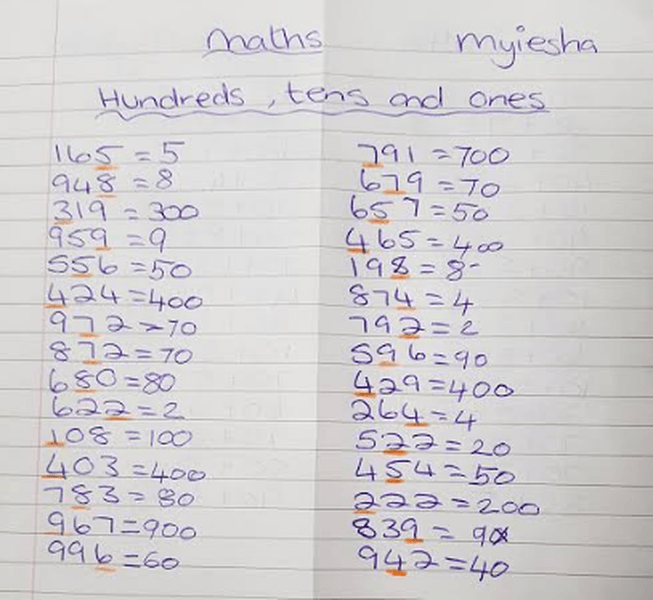 maths Myiesha
Hundreds, tens and ones
165 = 5
948 = 8
319 = 300
959 = 9
556 = 50
424 = 400
972 = 70
872 = 70
680 = 80
622 = 2
108 = 100
403 = 400
783 = 80
967 = 900
996 = 60
791 = 700
679 = 70
657 = 50
465 = 400
198 = 8
874 = 4
792 = 2
596 = 90
429 = 400
264 = 4
522 = 20
454 = 50
222 = 200
839 = 9
942 = 40